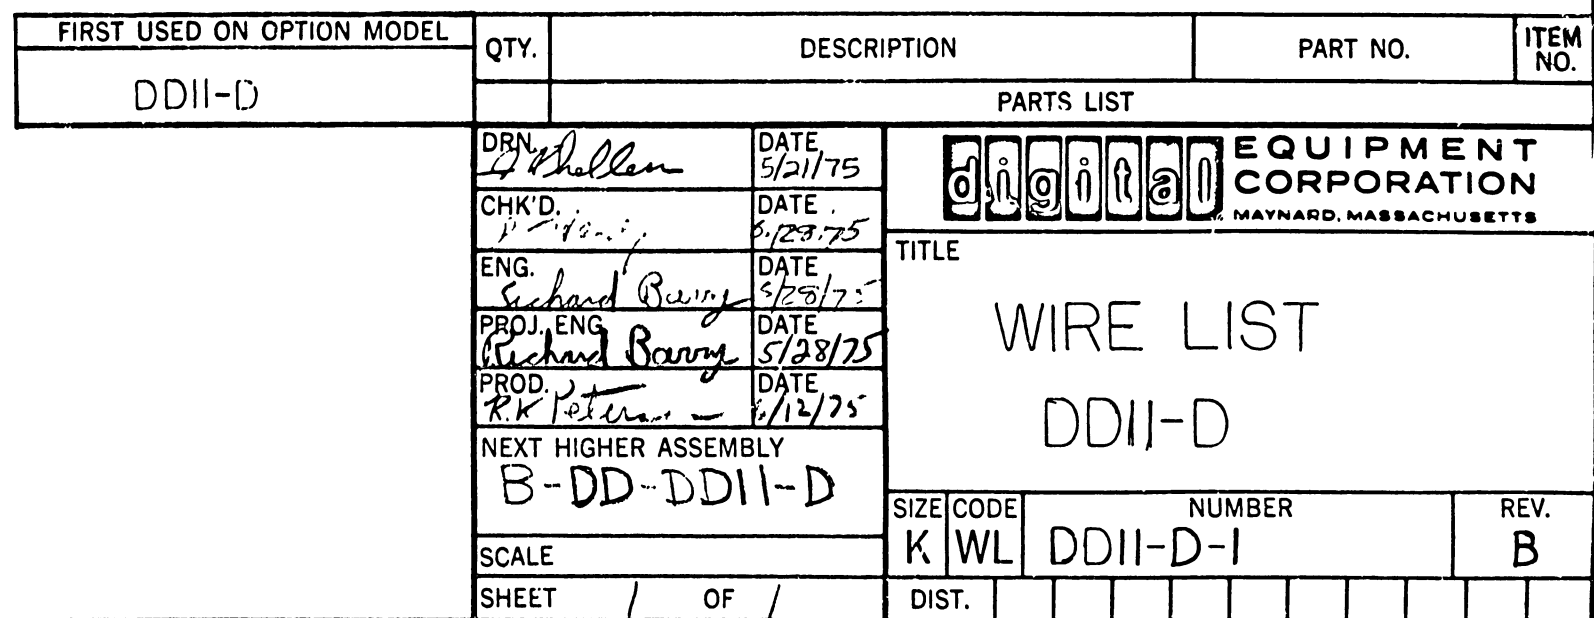 FIRST USED ON OPTION MODEL
DD11-D
QTY.
DESCRIPTION
PART NO.
ITEM NO.
PARTS LIST
DRN.
DATE
5/21/75
CHK'D.
DATE
5/28/75
ENG.
Richard Barry
DATE
5/28/75
PROJ. ENG.
Richard Barry
DATE
5/28/75
PROD.
R.K Peterson
DATE
6/12/75
NEXT HIGHER ASSEMBLY
B-DD-DD11-D
SCALE
SHEET 1 OF 1
digital EQUIPMENT CORPORATION
MAYNARD, MASSACHUSETTS
TITLE
WIRE LIST
DD11-D
SIZE
K
CODE
WL
NUMBER
DD11-D-1
REV.
B
DIST.